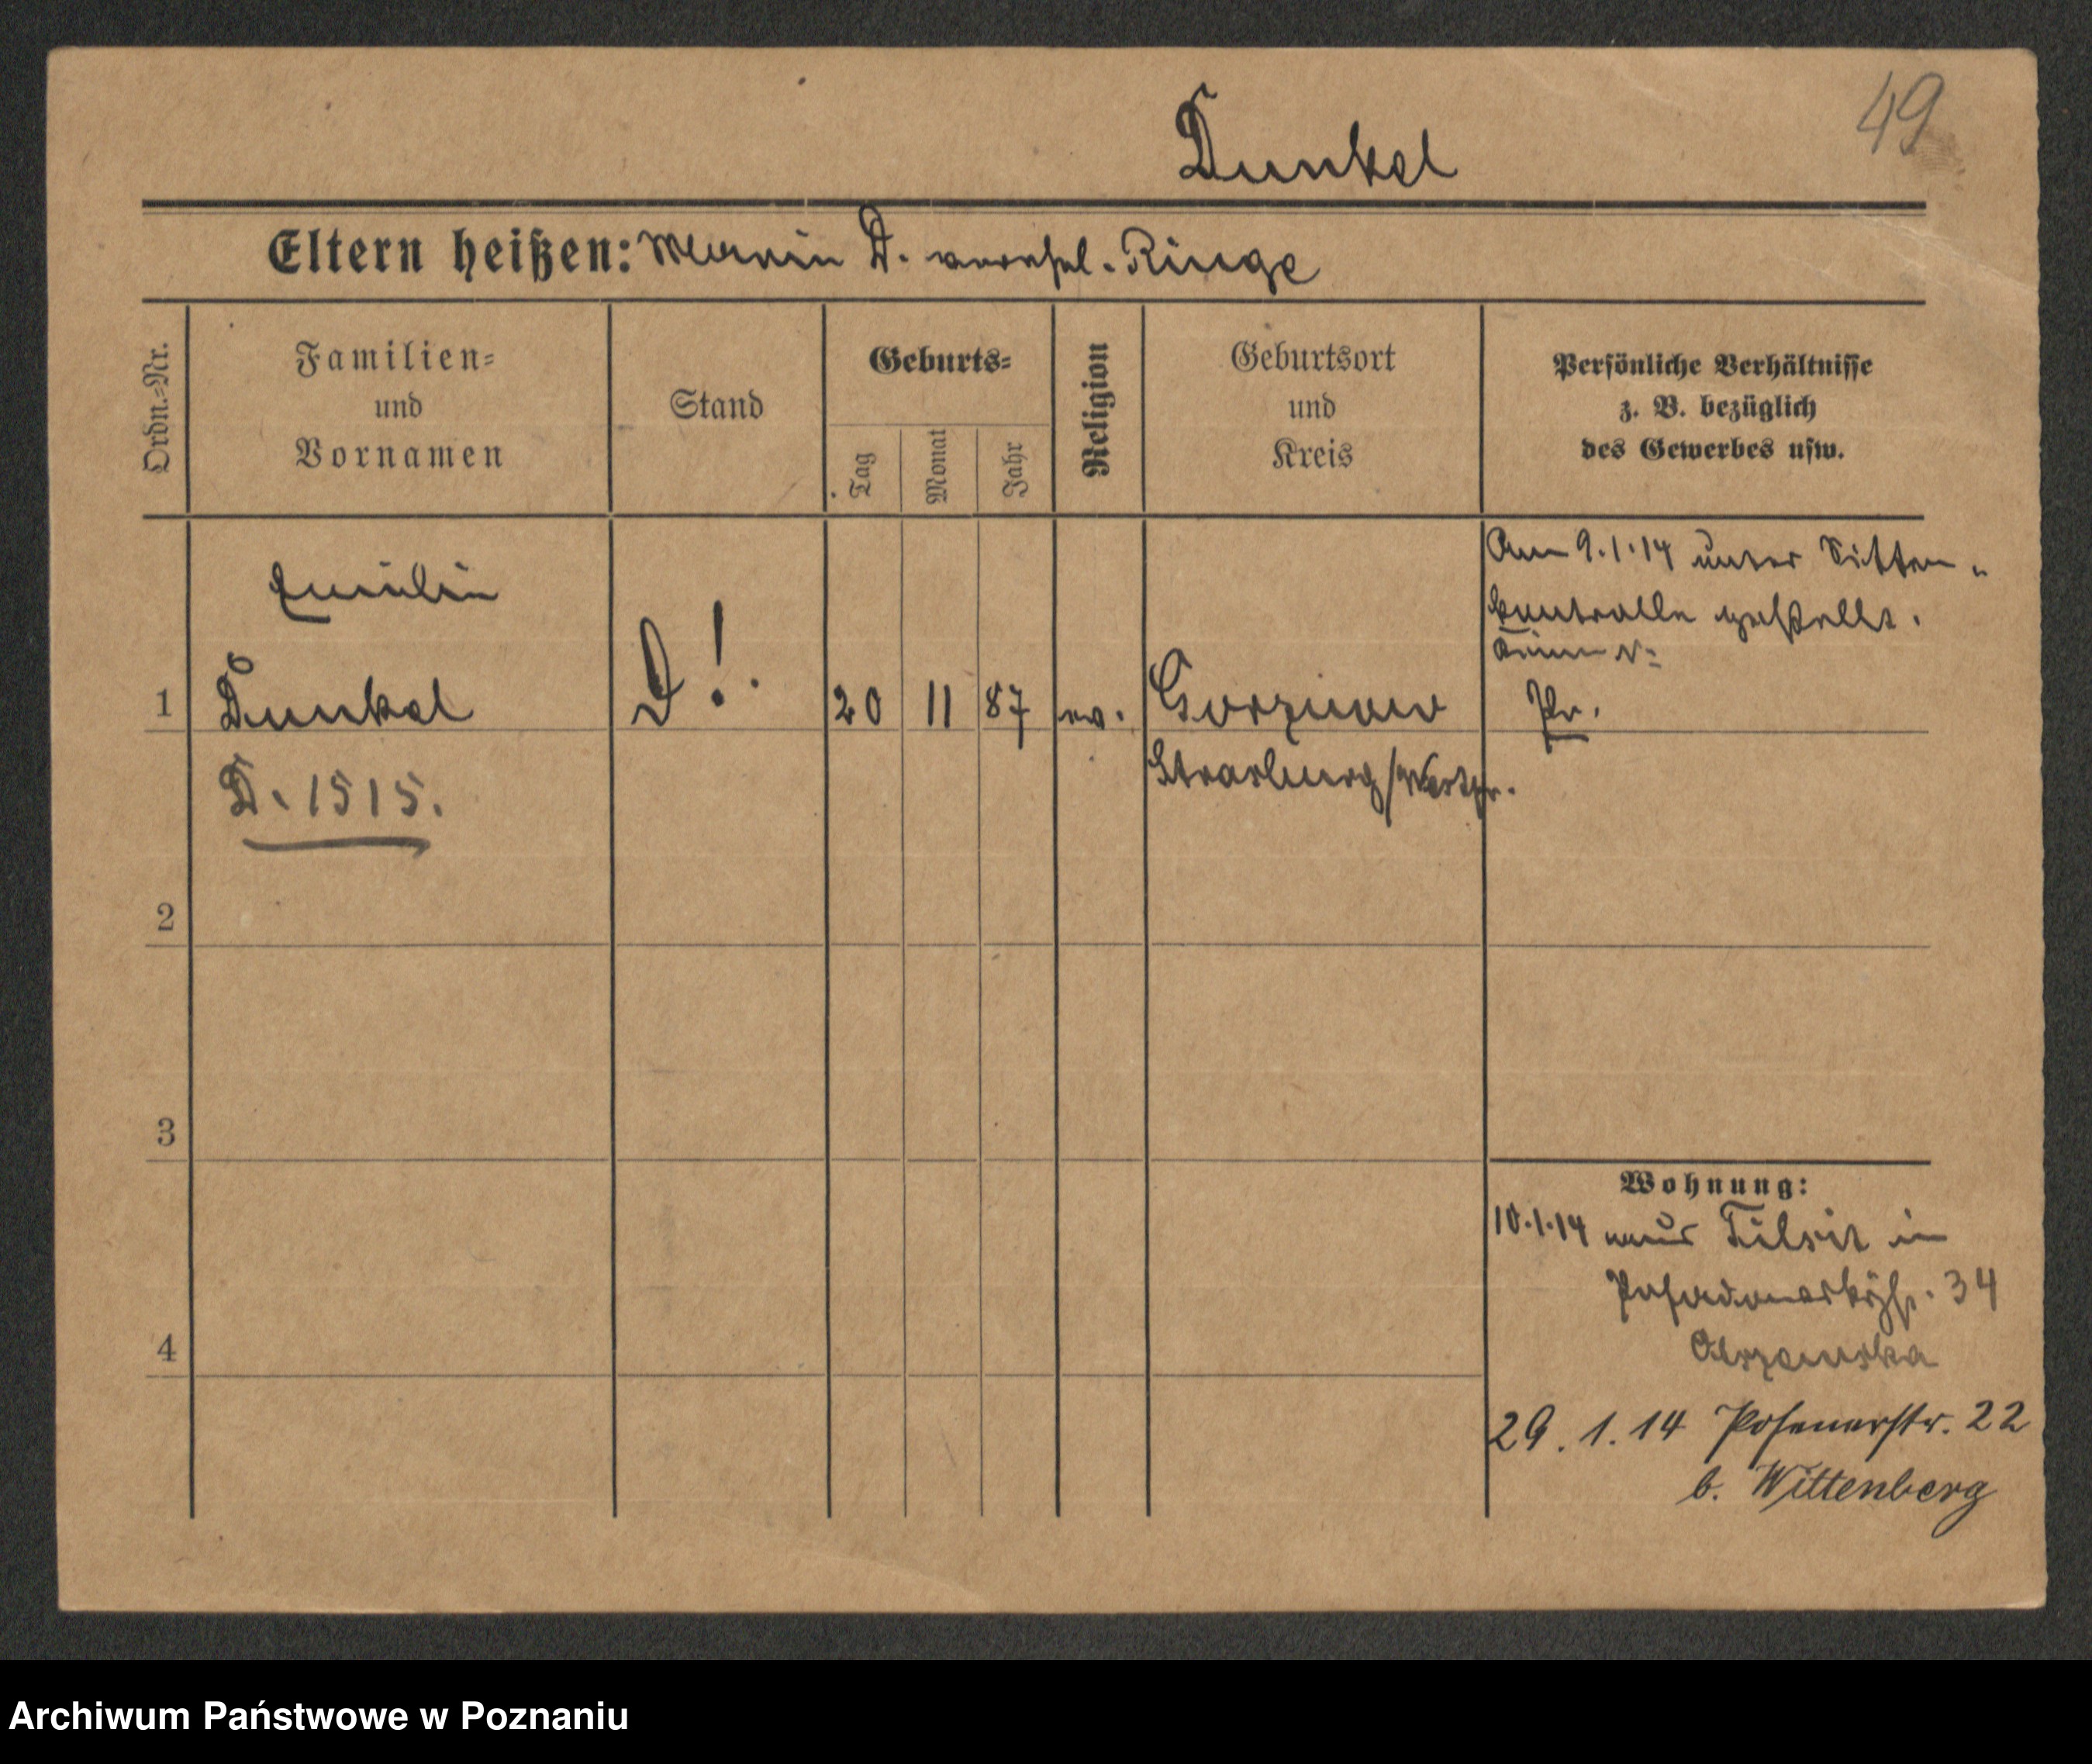 49
Dunkel
Eltern heißen: Marie D. verehel. Ringe
Ordn.=Nr.
Familien=
und
Vornamen
Stand
Geburts=
Tag
Monat
Jahr
Religion
Geburtsort
und
Kreis
Persönliche Verhältnisse
z. B. bezüglich
des Gewerbes usw.
Am 9.1.14 unter Sitten-
kontrolle gestellt.
Pr.
1
Emilie
Dunkel
D!
20
11
87
ev.
Gorzno
Strasburg/Westpr.
D. 1515.
2
3
4
Wohnung:
10.1.14 aus Tilsit in
34
29.1.14 Posenerstr. 22
b. Wittenberg
Archiwum Państwowe w Poznaniu